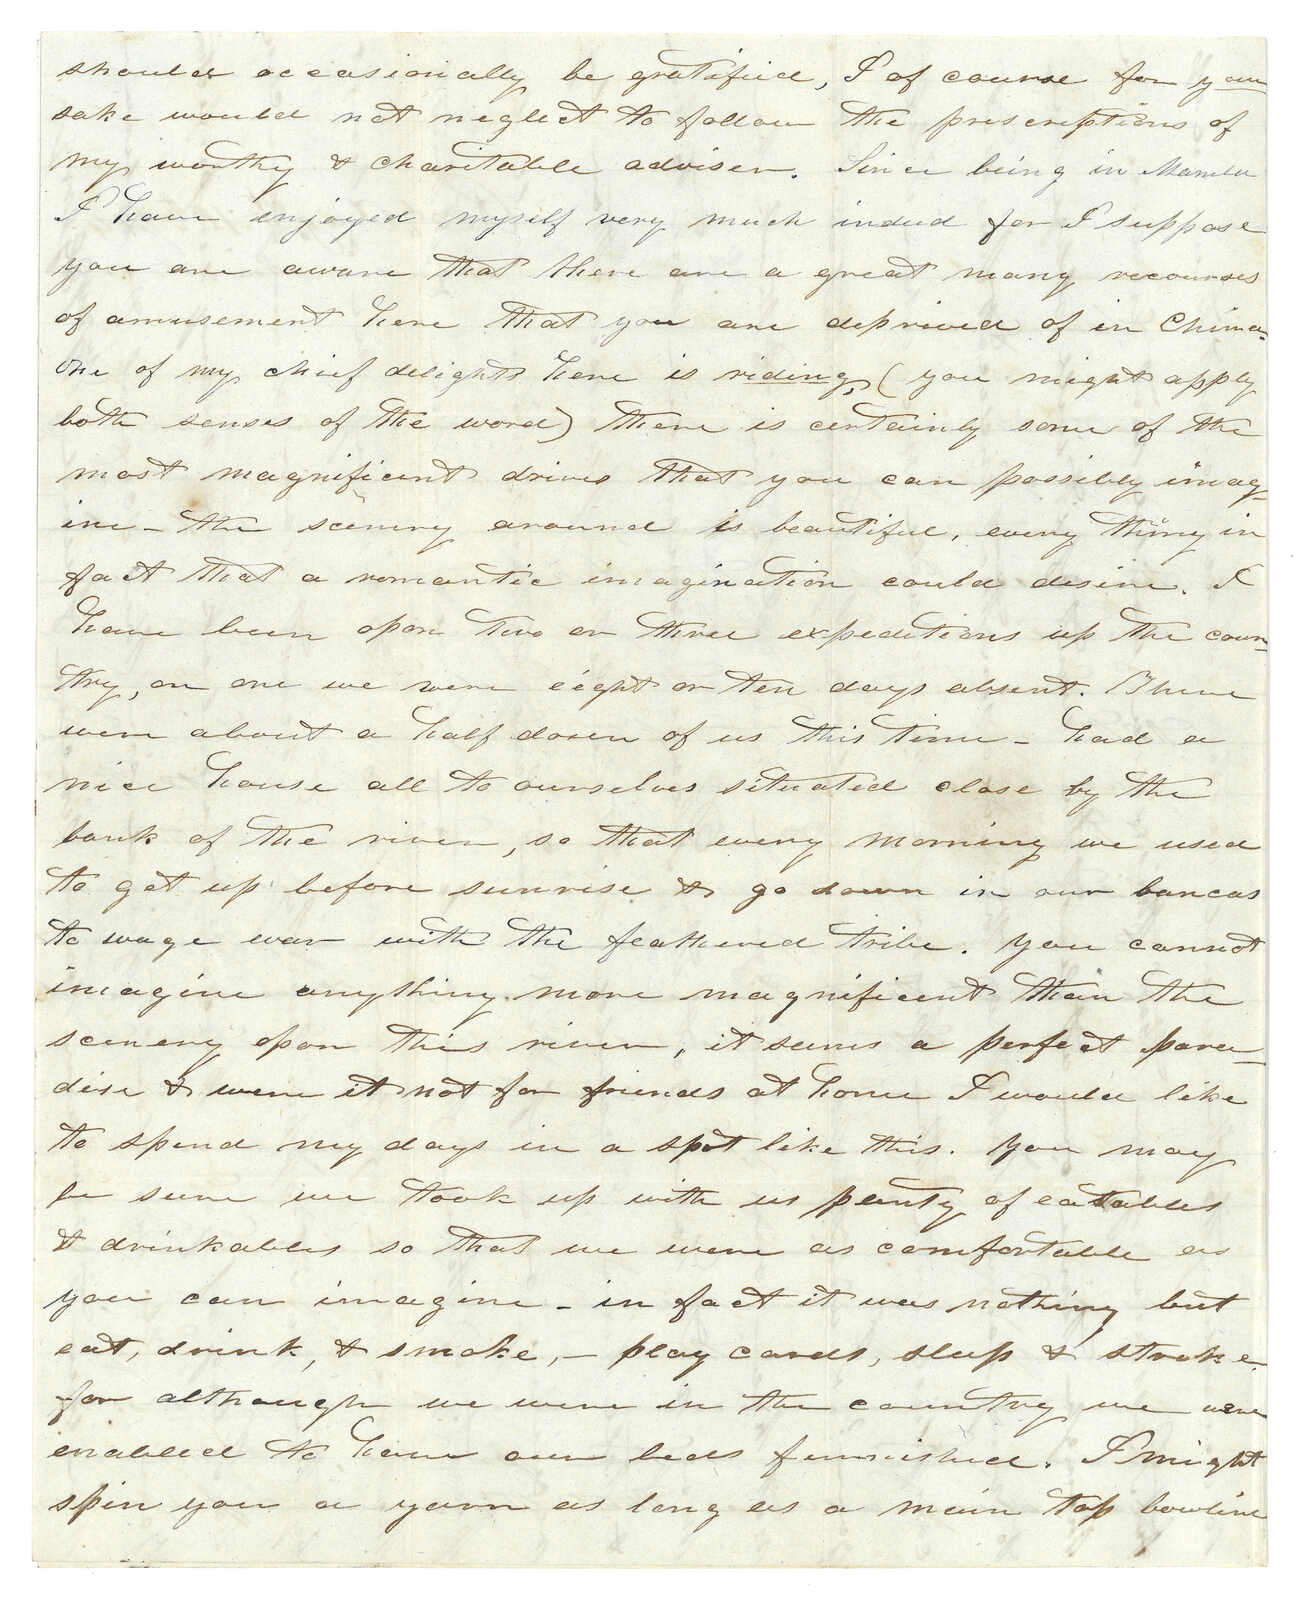 should occasionally be gratified, I of course for your
sake would not neglect to follow the prescriptions of
my worthy & charitable adviser. Since being in Manila
I have enjoyed myself very much indeed for I suppose
you are aware that there are a great many recourses
of amusement here that you are deprived of in China-
one of my chief delights here is riding, (you might apply
both senses of the word) there is certainly some of the
most magnificent drives that you can possibly imag-
ine - the scenery around is beautiful, every thing in
fact that a romantic imagination could desire. I
have been upon two or three expeditions up the coun-
try, on one we were eight or ten days absent. There
were about a half dozen of us this time - had a
nice house all to ourselves situated close by the
bank of the river, so that every morning we used
to get up before sunrise & go down in our bancas
to wage war with the feathered tribe. You cannot
imagine anything more magnificent than the
scenery upon this river, it seems a perfect para-
dise & were it not for friends at home I would like
to spend my days in a spot like this. You may
be sure we took up with us plenty of eatables
& drinkables so that we were as comfortable as
you can imagine - in fact it was nothing but
eat, drink, & smoke, - play cards, sleep & stroke.
for although we were in the country we were
enabled to have our beds furnished. I might
spin you a yarn as long as a main top bowline